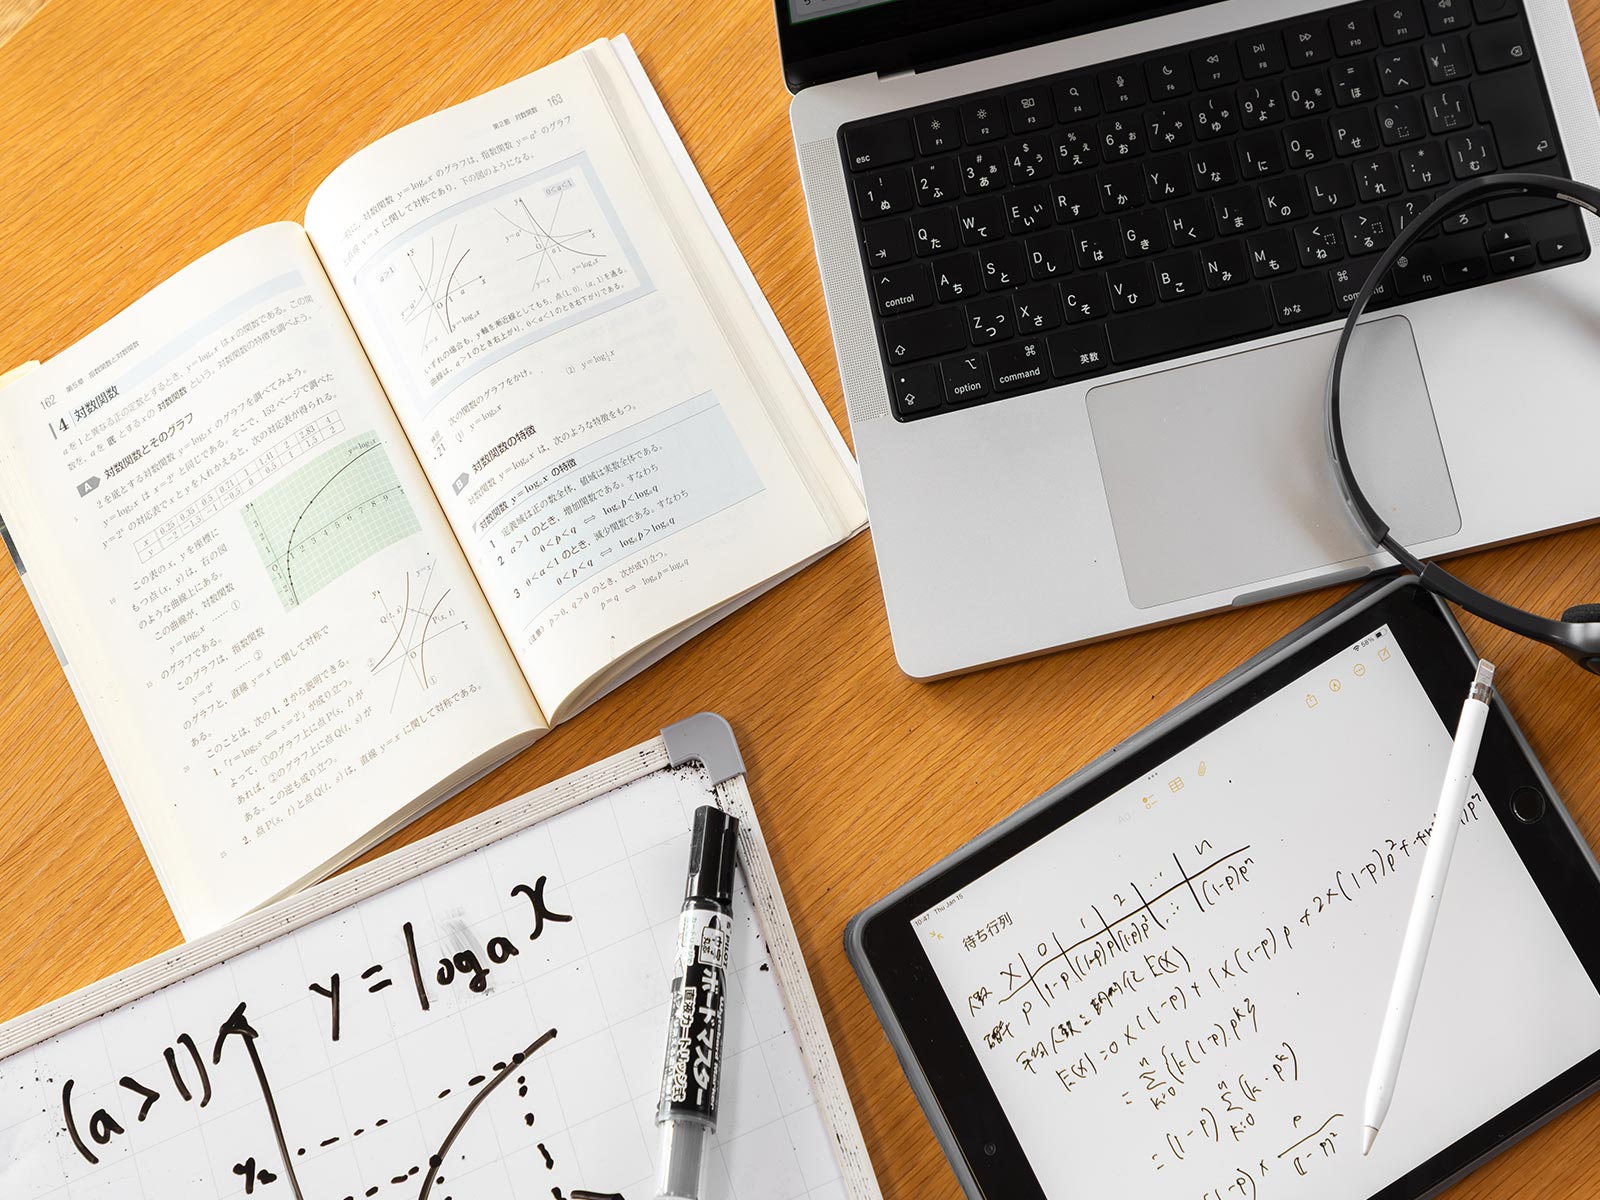 162 第5章 指数関数と対数関数
4 対数関数
aを1と異なる正の定数とするとき, y=logₐx はxの関数である。この関
数を, aを 底 とするxの 対数関数 という。対数関数の特徴を調べよう。
A 対数関数とそのグラフ
2を底とする対数関数 y=log₂x のグラフを調べてみよう。
y=log₂x は x=2ʸ と同じである。そこで, 152ページで調べた
y=2ˣ の対応表でxとyを入れかえると, 次の対応表が得られる。
x 0.25 0.35 0.5 0.71 1 1.41 2 2.83 4
y −2 −1.5 −1 −0.5 0 0.5 1 1.5 2
この表のx, yを座標に
もつ点(x, y)は, 右の図
のような曲線上にある。
この曲線が, 対数関数
y=log₂x …… ①
のグラフである。
このグラフは, 指数関数
y=2ˣ …… ②
のグラフと, 直線 y=x に関して対称で
ある。
このことは, 次の1, 2から説明できる。
1. 「t=log₂s ⟺ s=2ᵗ」が成り立つ。
よって, ①のグラフ上に点P(s, t)が
あれば, ②のグラフ上に点Q(t, s)が
ある。この逆も成り立つ。
2. 点P(s, t)と点Q(t, s)は, 直線 y=x に関して対称である。
y=log₂x
Q(t, s)
P(s, t)
y=x
第2節 対数関数 163
一般に, 対数関数 y=logₐx のグラフは, 指数関数 y=aˣ のグラフ
と直線 y=x に関して対称であり, 下の図のようになる。
a>1
0<a<1
y=aˣ
y=logₐx
y=x
いずれの場合も, y軸を漸近線としてもち, 点(1, 0), (a, 1)を通る。
曲線は, a>1のとき右上がり, 0<a<1のとき右下がりである。
練習
21 次の関数のグラフをかけ。
(1) y=log₃x
B 対数関数の特徴
対数関数 y=logₐx は, 次のような特徴をもつ。
対数関数 y=logₐx の特徴
1 定義域は正の数全体, 値域は実数全体である。
2 a>1のとき, 増加関数である。すなわち
0<p<q ⟺ logₐp<logₐq
3 0<a<1のとき, 減少関数である。すなわち
0<p<q ⟺ logₐp>logₐq
(注意) p>0, q>0 のとき, 次が成り立つ。
p=q ⟺ logₐp=logₐq
esc F1 F2 F3 F4 F5 F6 F7 F8 F9 F10 F11 F12
control
option
command
英数
かな
command
fn
y = logₐx
(a>1)
y₂
PILOT
ボードマスター
直液カートリッジ式
10:47 Thu Jan 15
58%
待ち行列
人数 X 0 1 2 … n
確率 P 1-p (1-p)p (1-p)p² … (1-p)pⁿ
E(X)
E(X)=0×(1-p)+1×(1-p)p+2×(1-p)p²+
=Σ{k(1-p)・pᵏ}
=(1-p)Σ(k・pᵏ)
(1-p)×p/(1-p)²